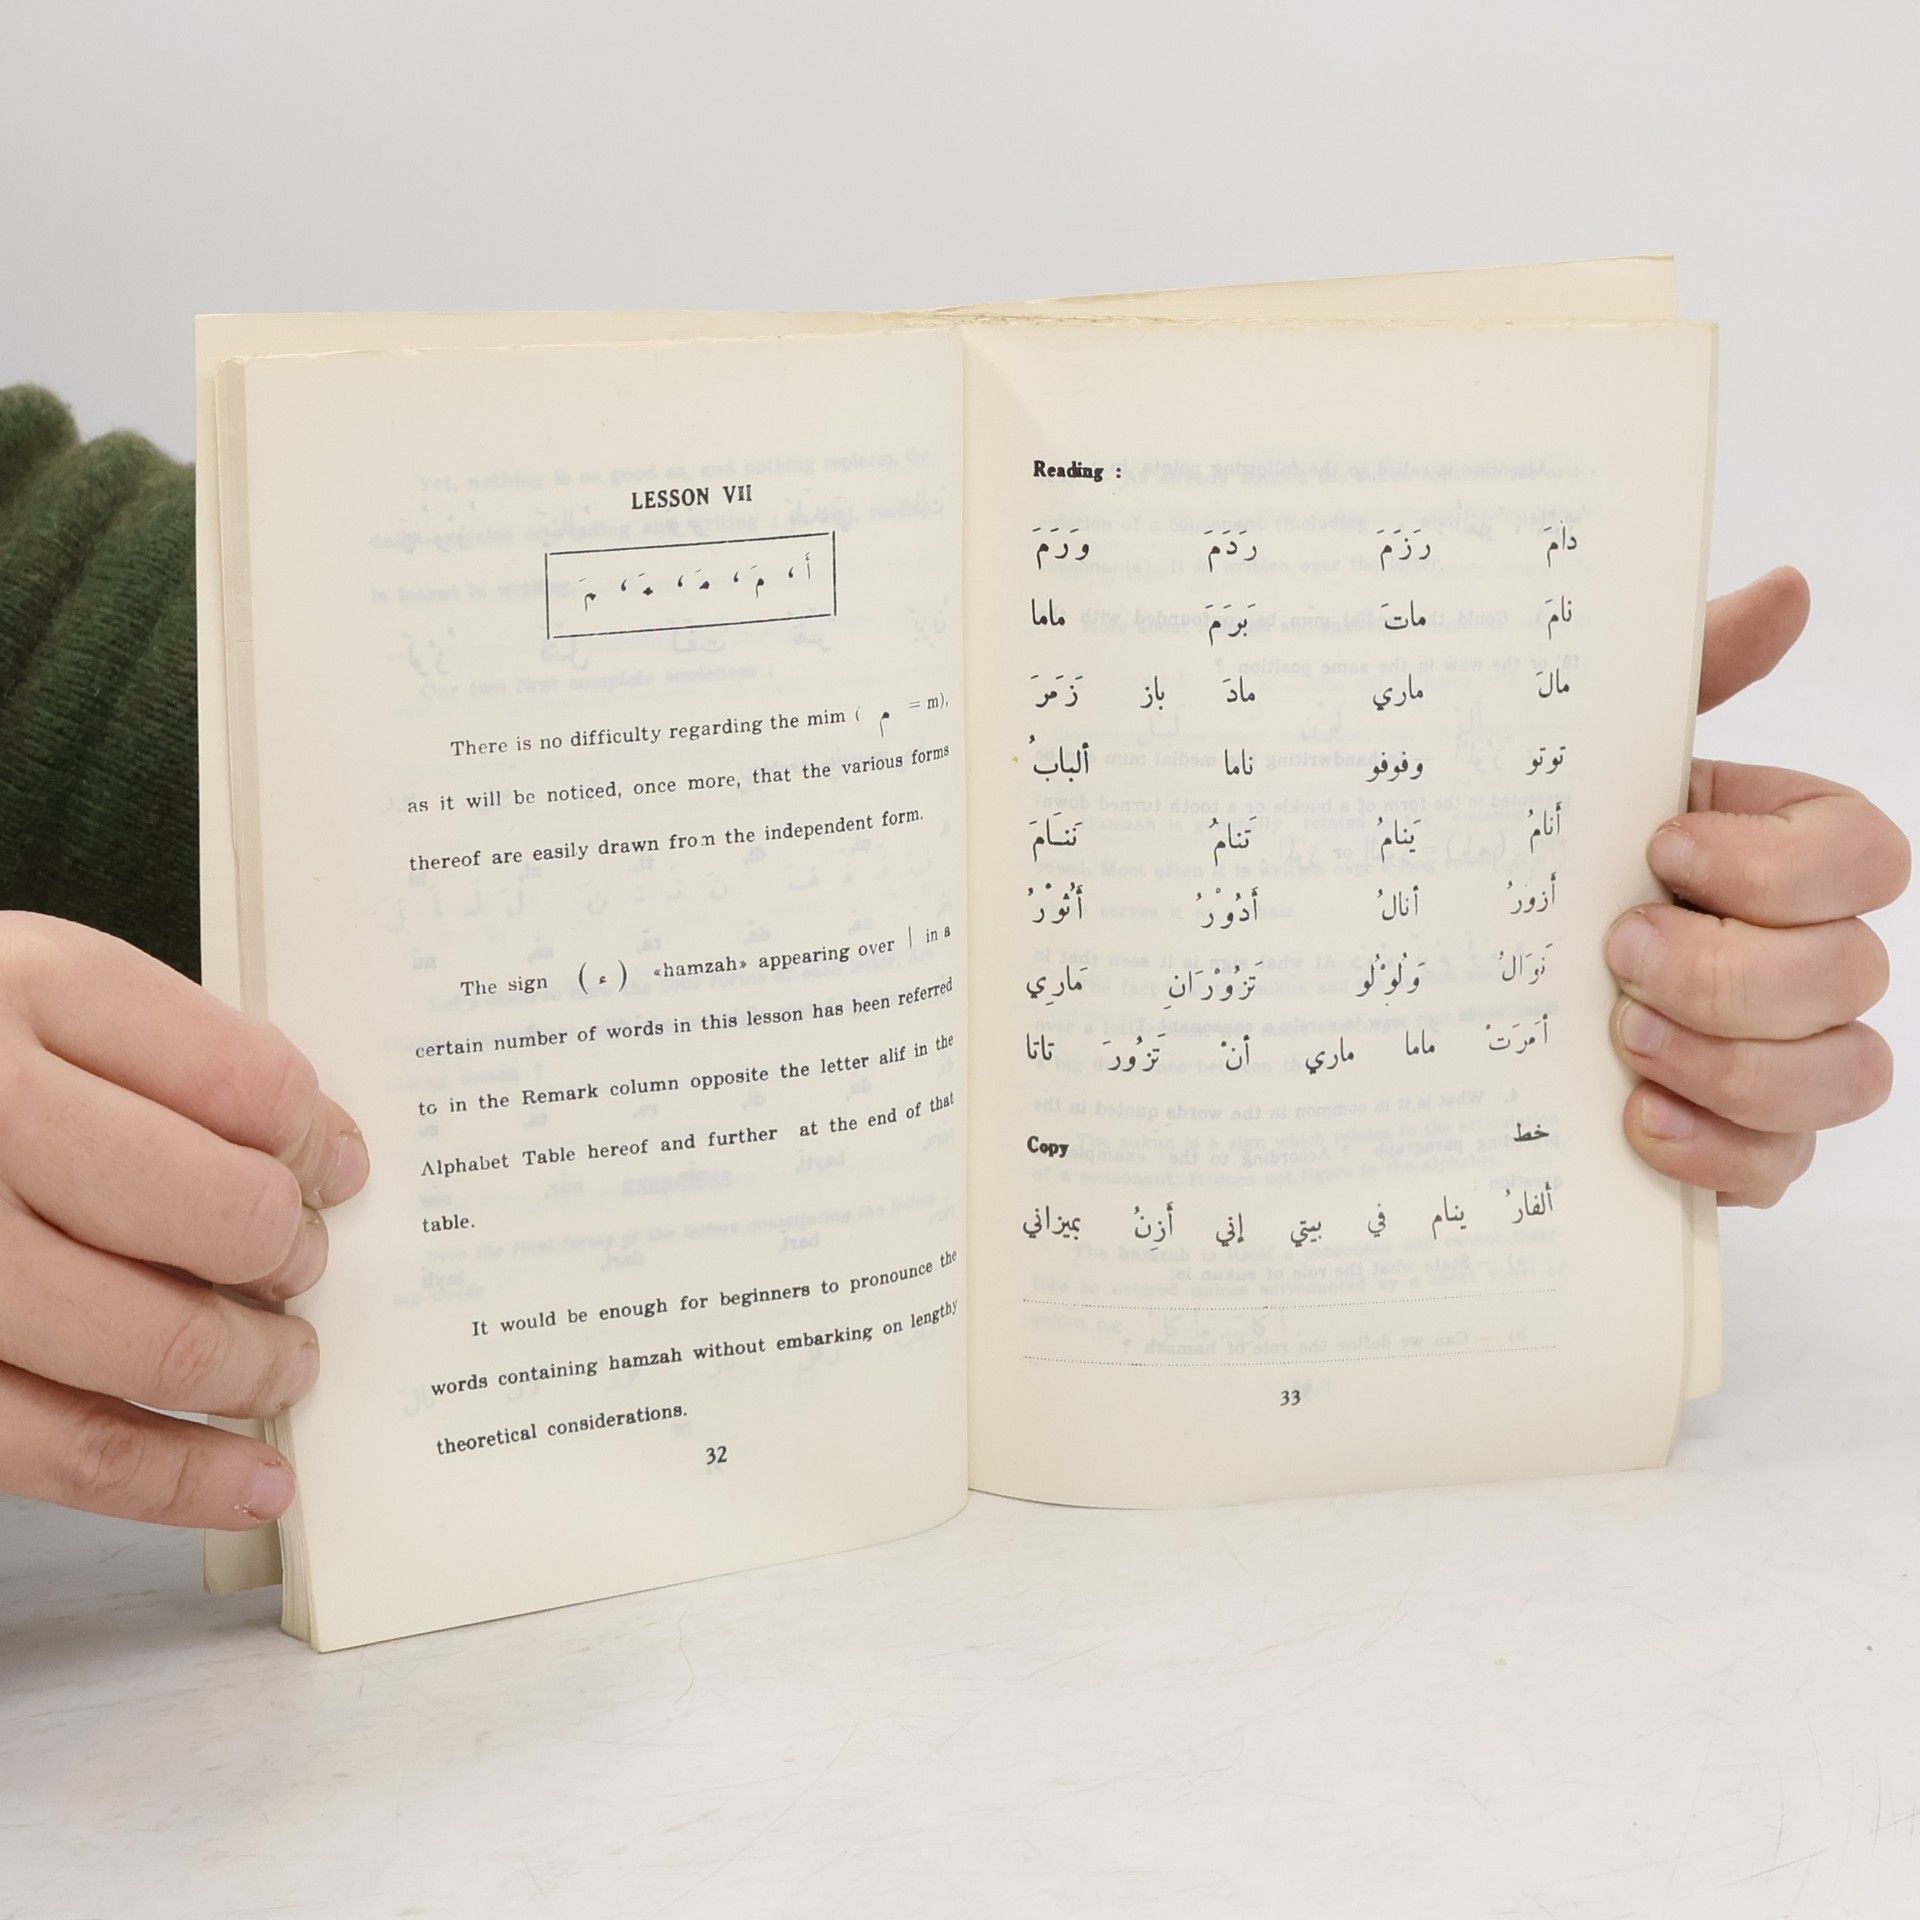 LESSON VII
أَ ، مَ ، مَـ ، ـمَـ ، ـمَ
There is no difficulty regarding the mim ( م = m),
as it will be noticed, once more, that the various forms
thereof are easily drawn from the independent form.
The sign ( ء ) «hamzah» appearing over ا in a
certain number of words in this lesson has been referred
to in the Remark column opposite the letter alif in the
Alphabet Table hereof and further at the end of that
table.
It would be enough for beginners to pronounce the
words containing hamzah without embarking on lengthy
theoretical considerations.
32
Reading :
دامَ رَزَمَ رَدَمَ وَرَمَ
نامَ ماتَ بَرَمَ ماما
مالَ ماري مادَ باز زَمَرَ
توتو وفوفو ناما ألبابُ
أَنامُ يَنامُ تَنامُ تَنـَامَ
أَزورُ أنالُ أَدُوْرُ أَثُوْرُ
نَوَالُ وَلُوْلُو تَزُوْرَانِ مَارِي
أمَرَتْ ماما ماري أنْ تَزُورَ تاتا
Copy خط
ألفارُ ينام في بيتي إني أَزِنُ بميزاني
33